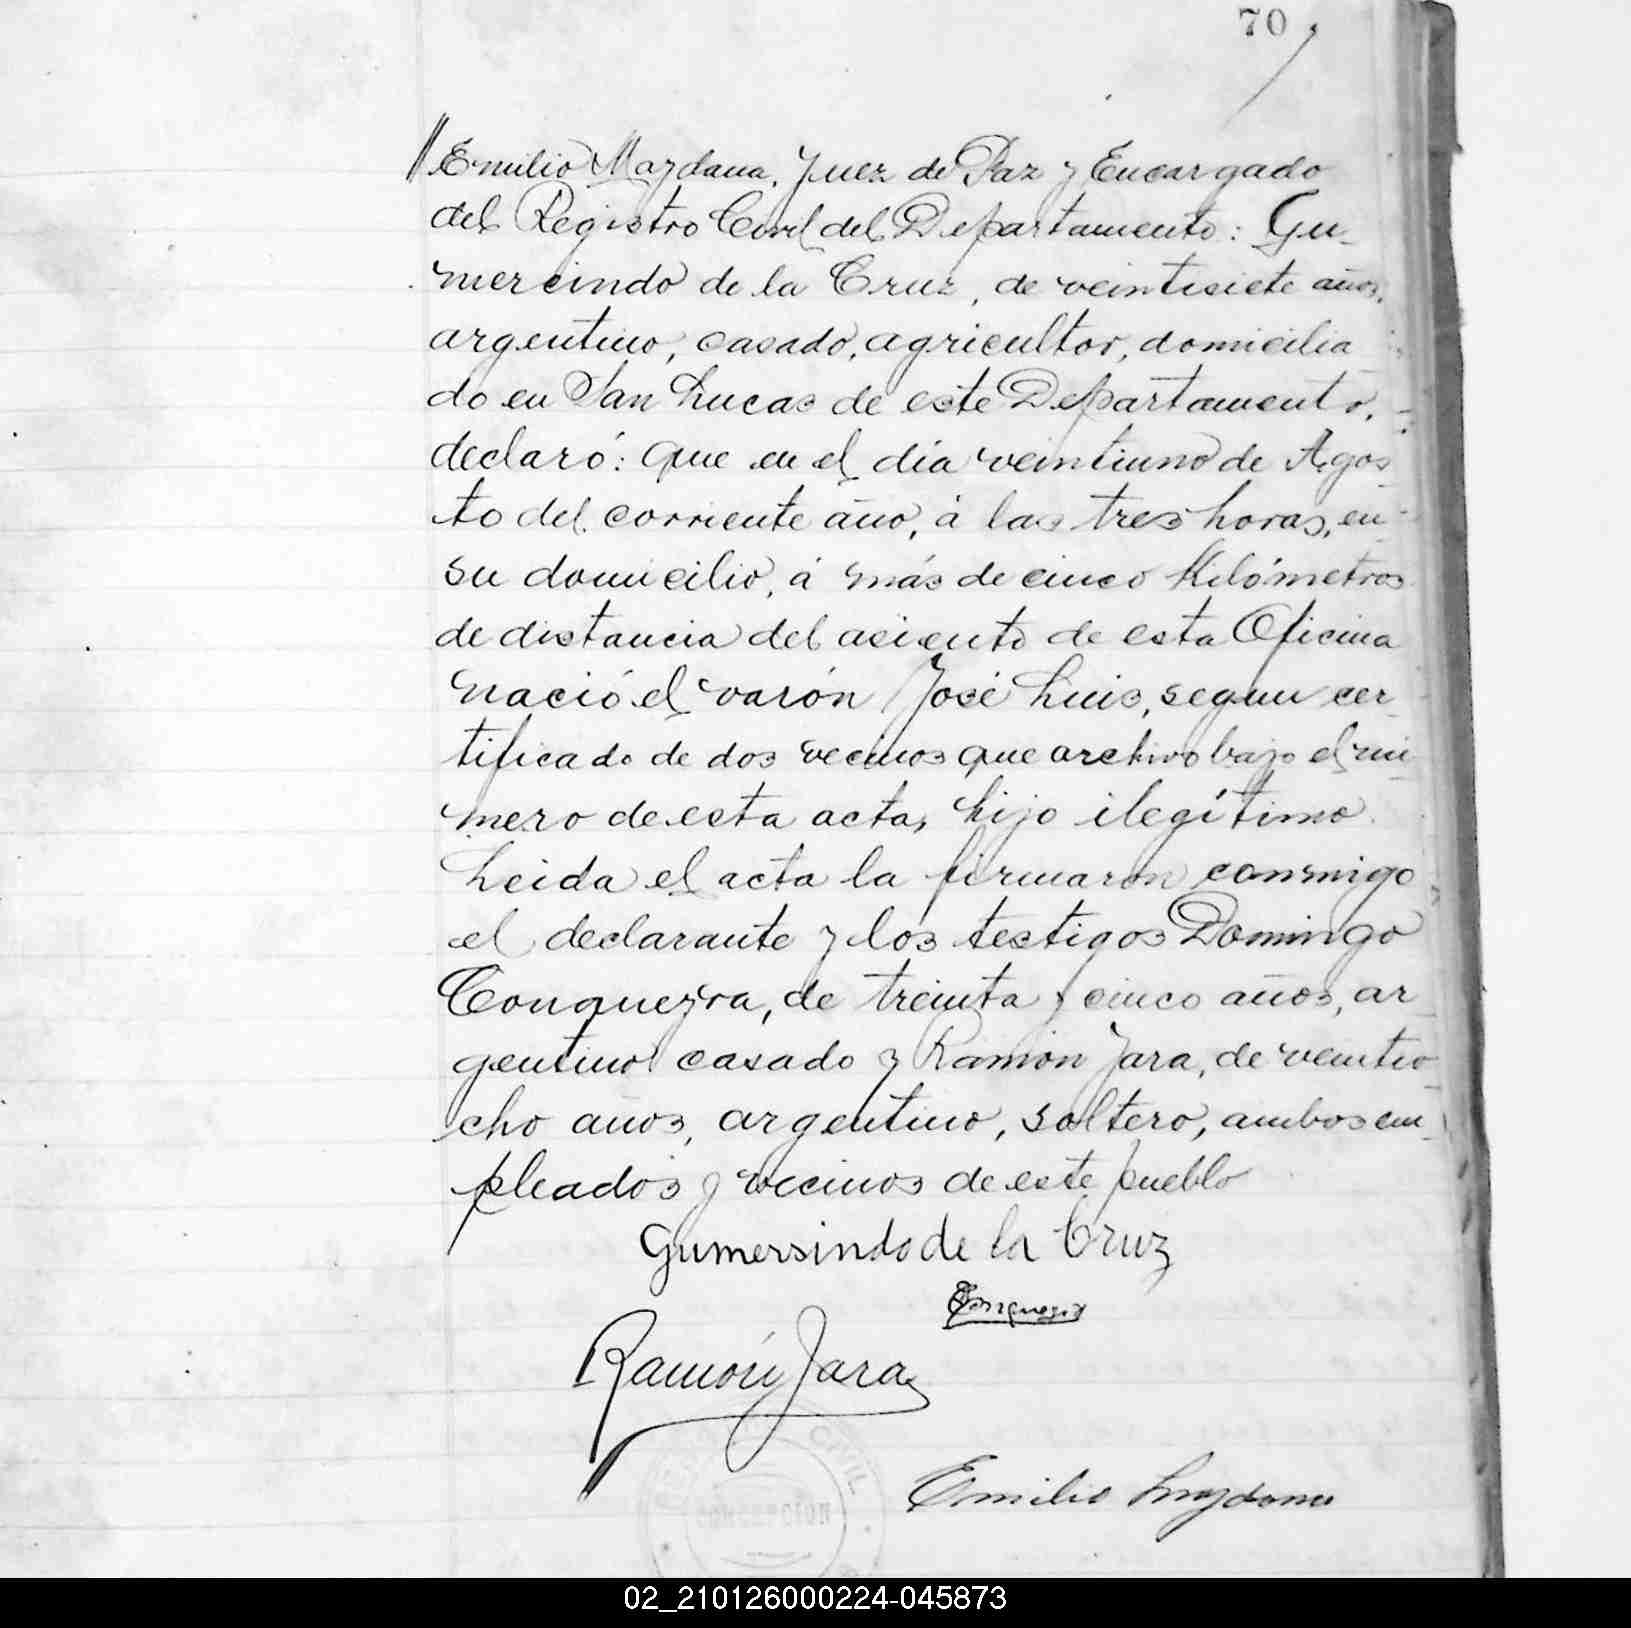 70
Emilio Maydana, Juez de Paz y Encargado
del Registro Civil del Departamento: Gu-
mercindo de la Cruz, de veintisiete años,
argentino, casado, agricultor, domicilia
do en San Lucas de este Departamento,
declaró: que en el día veintiuno de Agos-
to del corriente año, á las tres horas, en
su domicilio, á más de cinco Kilómetros
de distancia del asiento de esta Oficina
nació el varón José Luis, segun cer-
tificado de dos vecinos que archivo bajo el nú
mero de esta acta, hijo ilegítimo
Leida el acta la firmaron conmigo
el declarante y los testigos Domingo
Conqueyra, de treinta y cinco años, ar-
gentino casado y Ramón Jara, de veintio-
cho años, argentino, soltero, ambos em-
pleados y vecinos de este pueblo
Gumersindo de la Cruz
Ramón Jara
Emilio Maydana
CIVIL
CONCEPCION
02_210126000224-045873